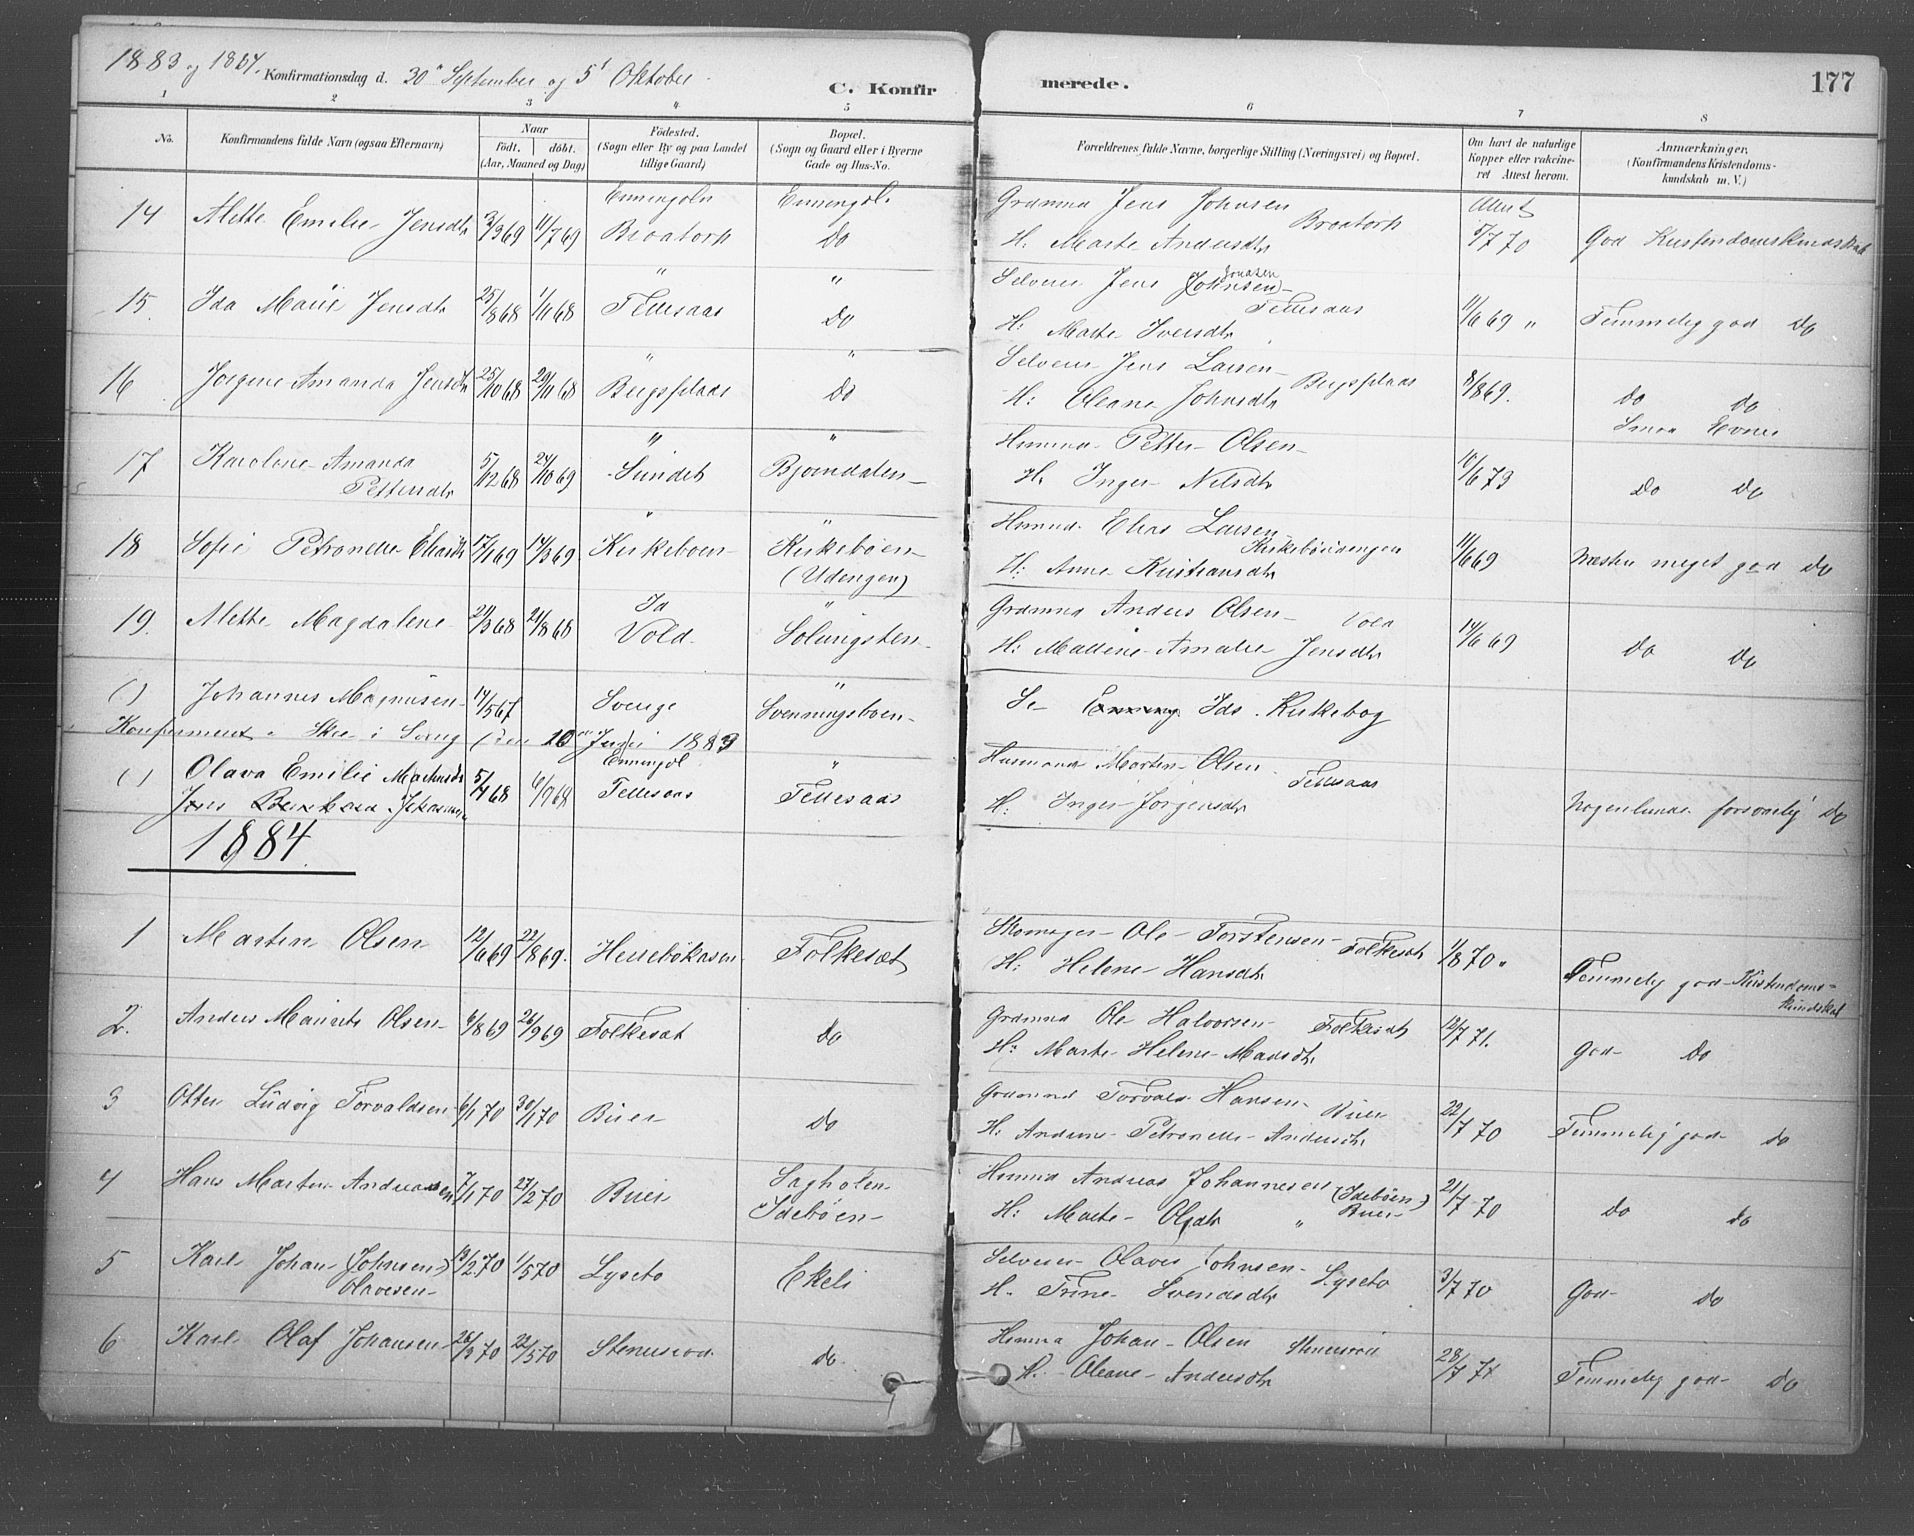 1883 og 1884. Konfirmationsdag d. 30te September og 5t Oktober.
C. Konfirmerede.
177
1 2 3 4 5 6 7 8
No.
Konfirmandens fulde Navn (ogsaa Efternavn)
Naar
födt. döbt.
(Aar, Maaned og Dag)
Födested.
(Sogn eller By og paa Landet
tillige Gaard)
Bopæl.
(Sogn og Gaard eller i Byerne
Gade og Hus-No.
Forældrenes fulde Navne, borgerlige Stilling (Næringsvei) og Bopæl.
Om havt de naturlige
Kopper eller vakcine-
ret Attest herom.
Anmærkninger.
(Konfirmandens Kristendoms-
kundskab m. V.)
14 Alette Emilie Jensdtr 2/3 69 11/7 69 Enningdln Enningdl. Grdmnd Jens Johnsen Attest
Braatorp Do H. Marte Andersdtr Braatorp 5/7 70 God Kristendomskundskab
15. Ida Marie Jensdtr 25/8 68 1/11 68 " " Selveier Jens (Johnsen) Jonasen
Tellesaas Do H: Marte Iversdtr Tellesaas 11/6 69 " Temmelig god Do
16 Jørgene Amanda Jensdtr 25/10 68 29/11 68 " " Selveier Jens Larsen
Bergsplads Do H: Oleane Johnsdtr Bergsplads 8/8 69. Do Do
Smaa Evner
17 Karoline Amanda 5/12 68 24/10 69 " " Husmnd. Petter Olsen
Pettersdtr Sundet Bjørndalen H. Inger Nilsdtr 10/6 73 Do Do
18 Sofie Petronelle Eliasdtr 17/1 69 14/3 69 " " Husmd. Elias Larsen
Kirkeboen Kirkebøen Kirkebøudengen
(Udengen) H: Anne Kristiansdtr 11/6 69 Næsten meget god Do
19. Alette Magdalene 29/3 68 24/8 68 Id " Grdmnd Anders Olsen Vold
Vold Solungsten H: Mallene Amalie Jensdtr 14/6 69 Do Do
( ) Johannes Magnusen 14/5 67 Sverige " Svenningsboen Se Enning. Ids. Kirkebog
Konfirmeret i Skee i Sverig (den 10de Juni 1883
( ) Olava Emilie 5/4 68 6/9 68 Enningdl " Husmand Marten Olsen
Jens Bernhard Johansen Tellesaas Tellesaas H: Inger Jørgensdtr Tellesaas Nogenlunde forsvarlig Do
1884.
1 Martin Olsen 12/6 69 22/8 69. Herrebøkasen Folkesæt Skomager Ole Torstensen Folkesæt
H: Helene Hansdtr 1/8 70 " Temmelig god Kristendoms-
kundskab
2. Anders Maurits Olsen 6/8 69 26/9 69 Folkesæt Do Grdmnd Ole Halvorsen Folkesæt 12/7 71.
H: Marte Helene Mansdtr God Do
3 Otter Ludvig Torvaldsen 6/1 70 30/1 70 Buer Do Grdmnd Torvald Hansen Buer 22/7 70
H: Andrine Petronelle Andersdtr Temmelig god Do
4 Hans Martin Andreassen 7/1 70 27/2 70 Buer Sagholen Husmd Andreas Johannesen (Idebøen) 21/7 70
Idebøen H: Marte Olsdtr " Buer Do Do
5 Karl Johan (Johnsen) 19/2 70 1/5 70 Lyseto Ekeli Selveier Olaves Johnsen Lyseto 3/7 70
Olavesen H. Trine Svendsdtr God Do
6 Karl Olaf Johansen 26/3 70 22/5 70 Stenerød Do Husmd Johan Olsen Stenersrød 28/7 71
H. Oleane Andersdtr Temmelig god Do